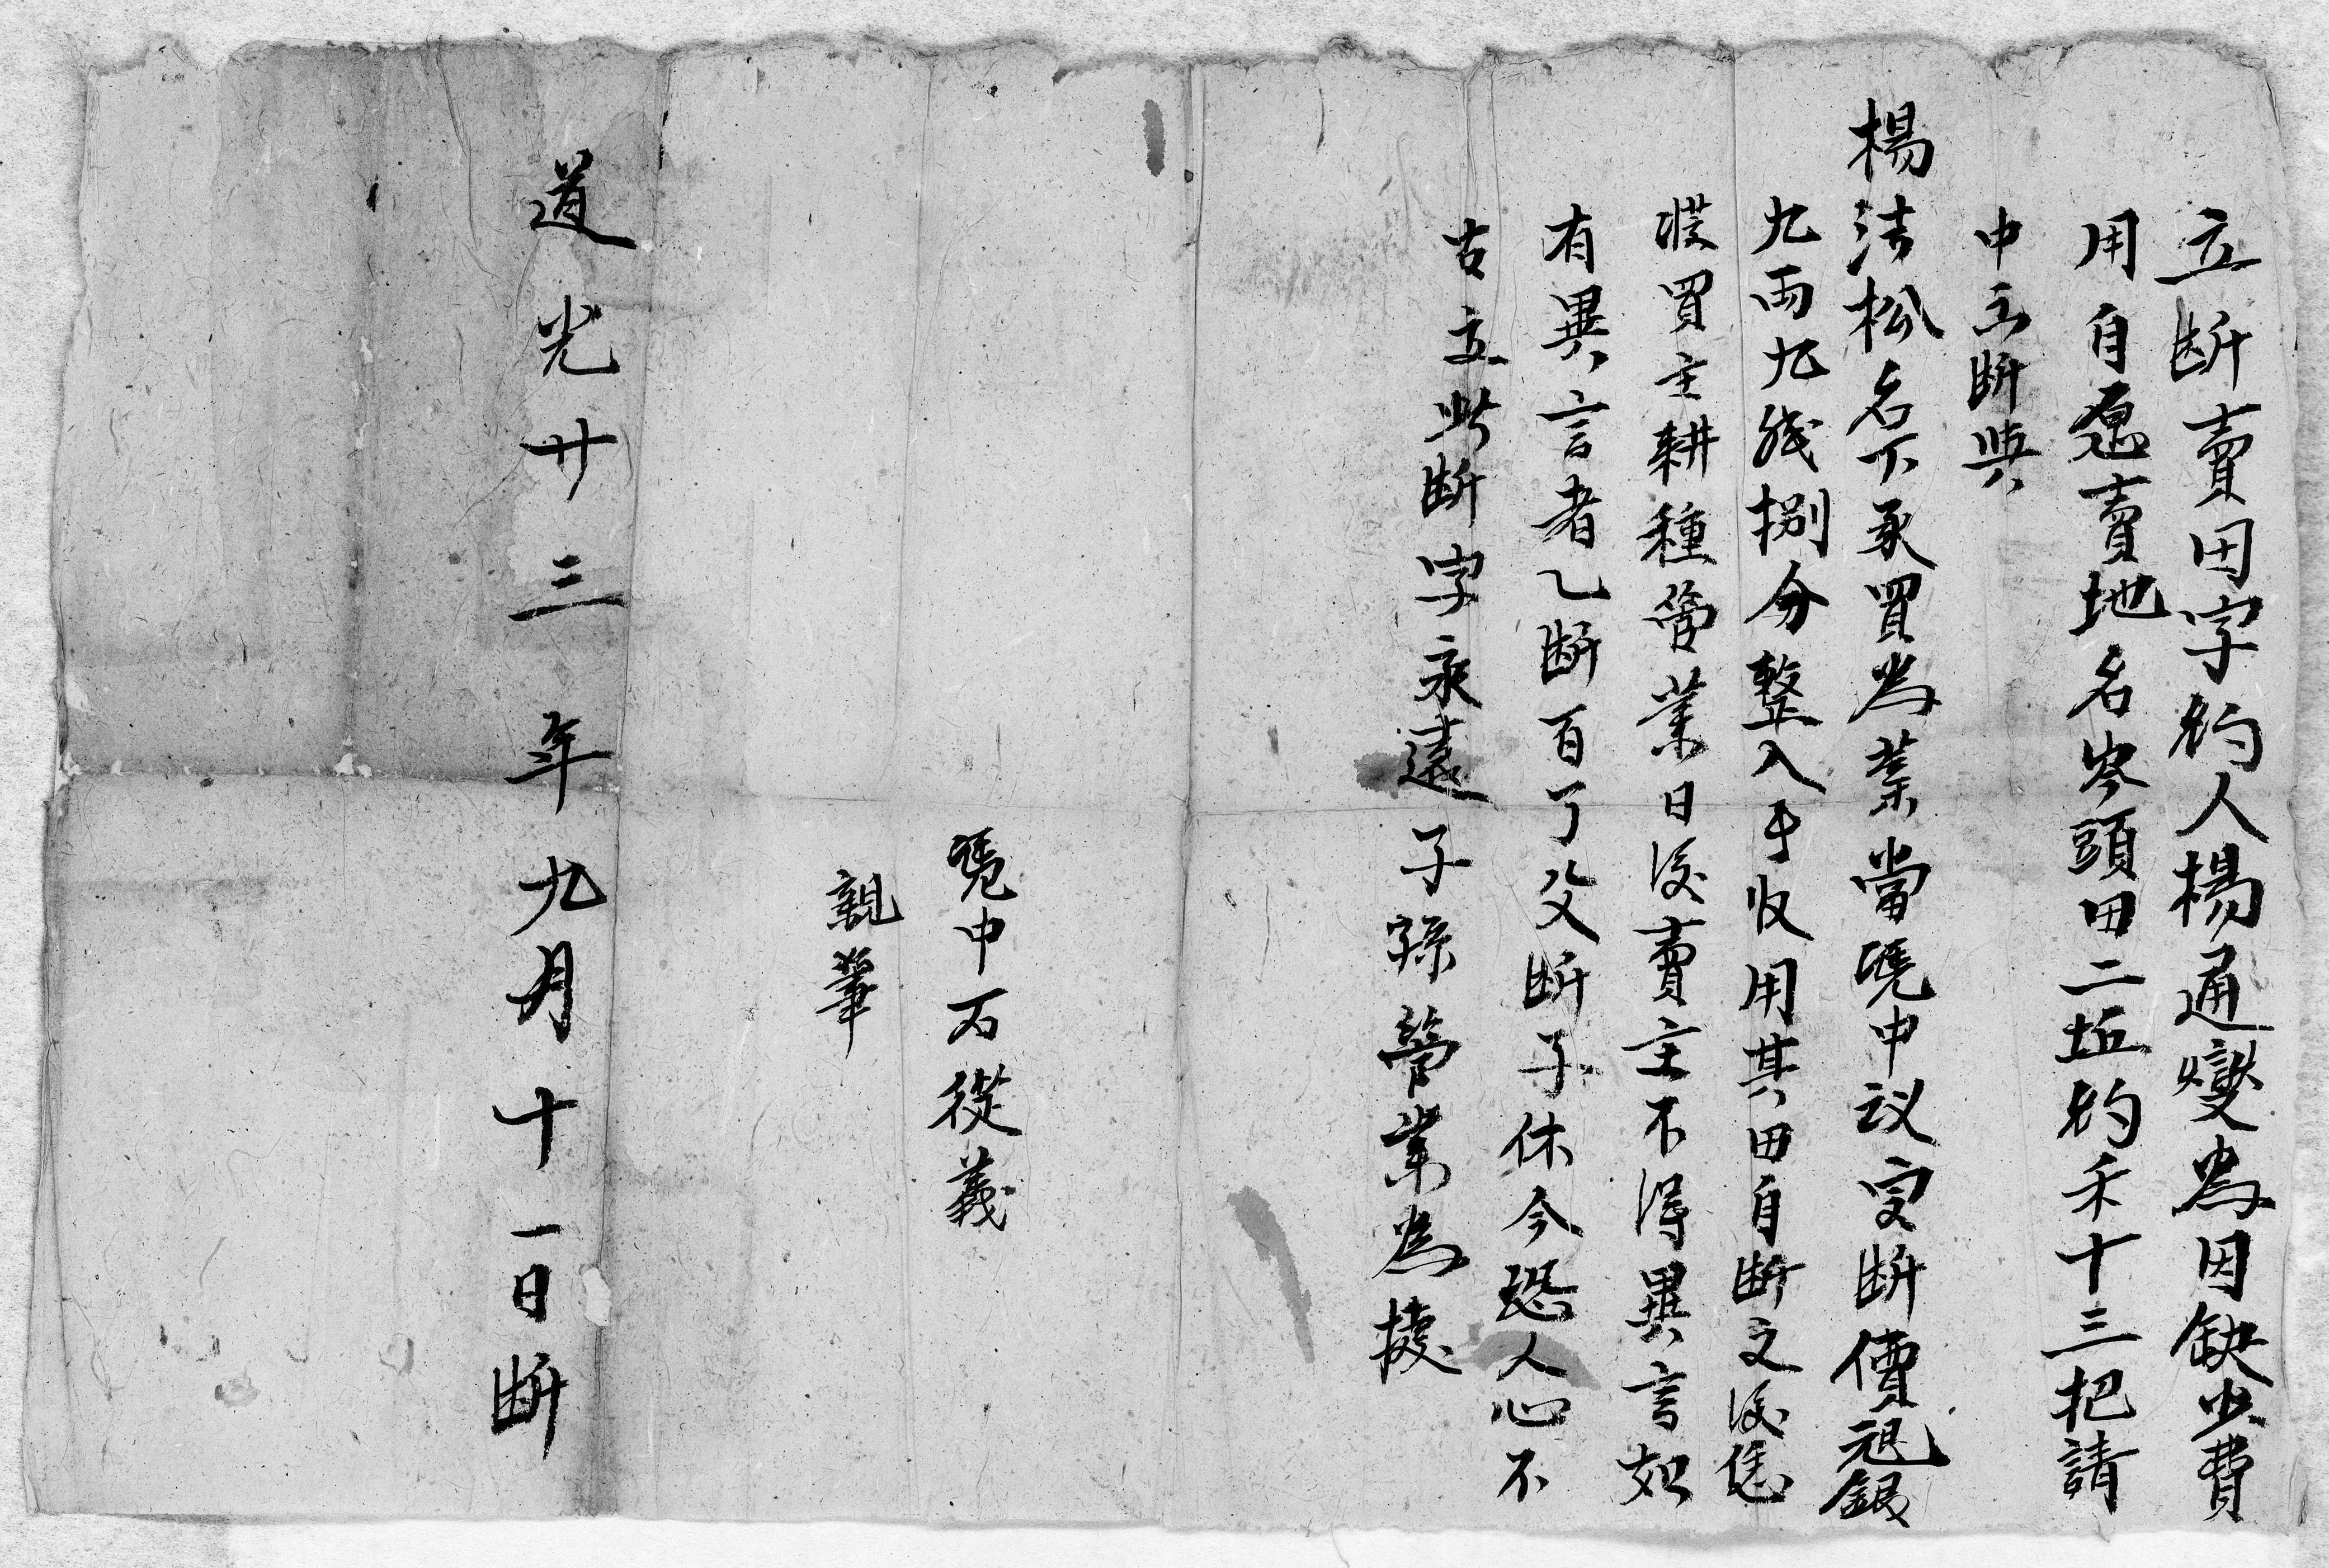 立断賣田字約人楊通燮為因缺少費
用自愿賣地名岑頭田二坵約禾十三把請
中立断與
楊法松名下承買為業當凴中议定断價元銀
九両九钱捌分整入手收用其田自断之後恁
憑買主耕種管業日後賣主不得異言如
有異言者乙断百了父断子休今恐人心不
古立此断字永遠子孫管業為據
凴中石從義
親筆
道光廿三年九月十一日断